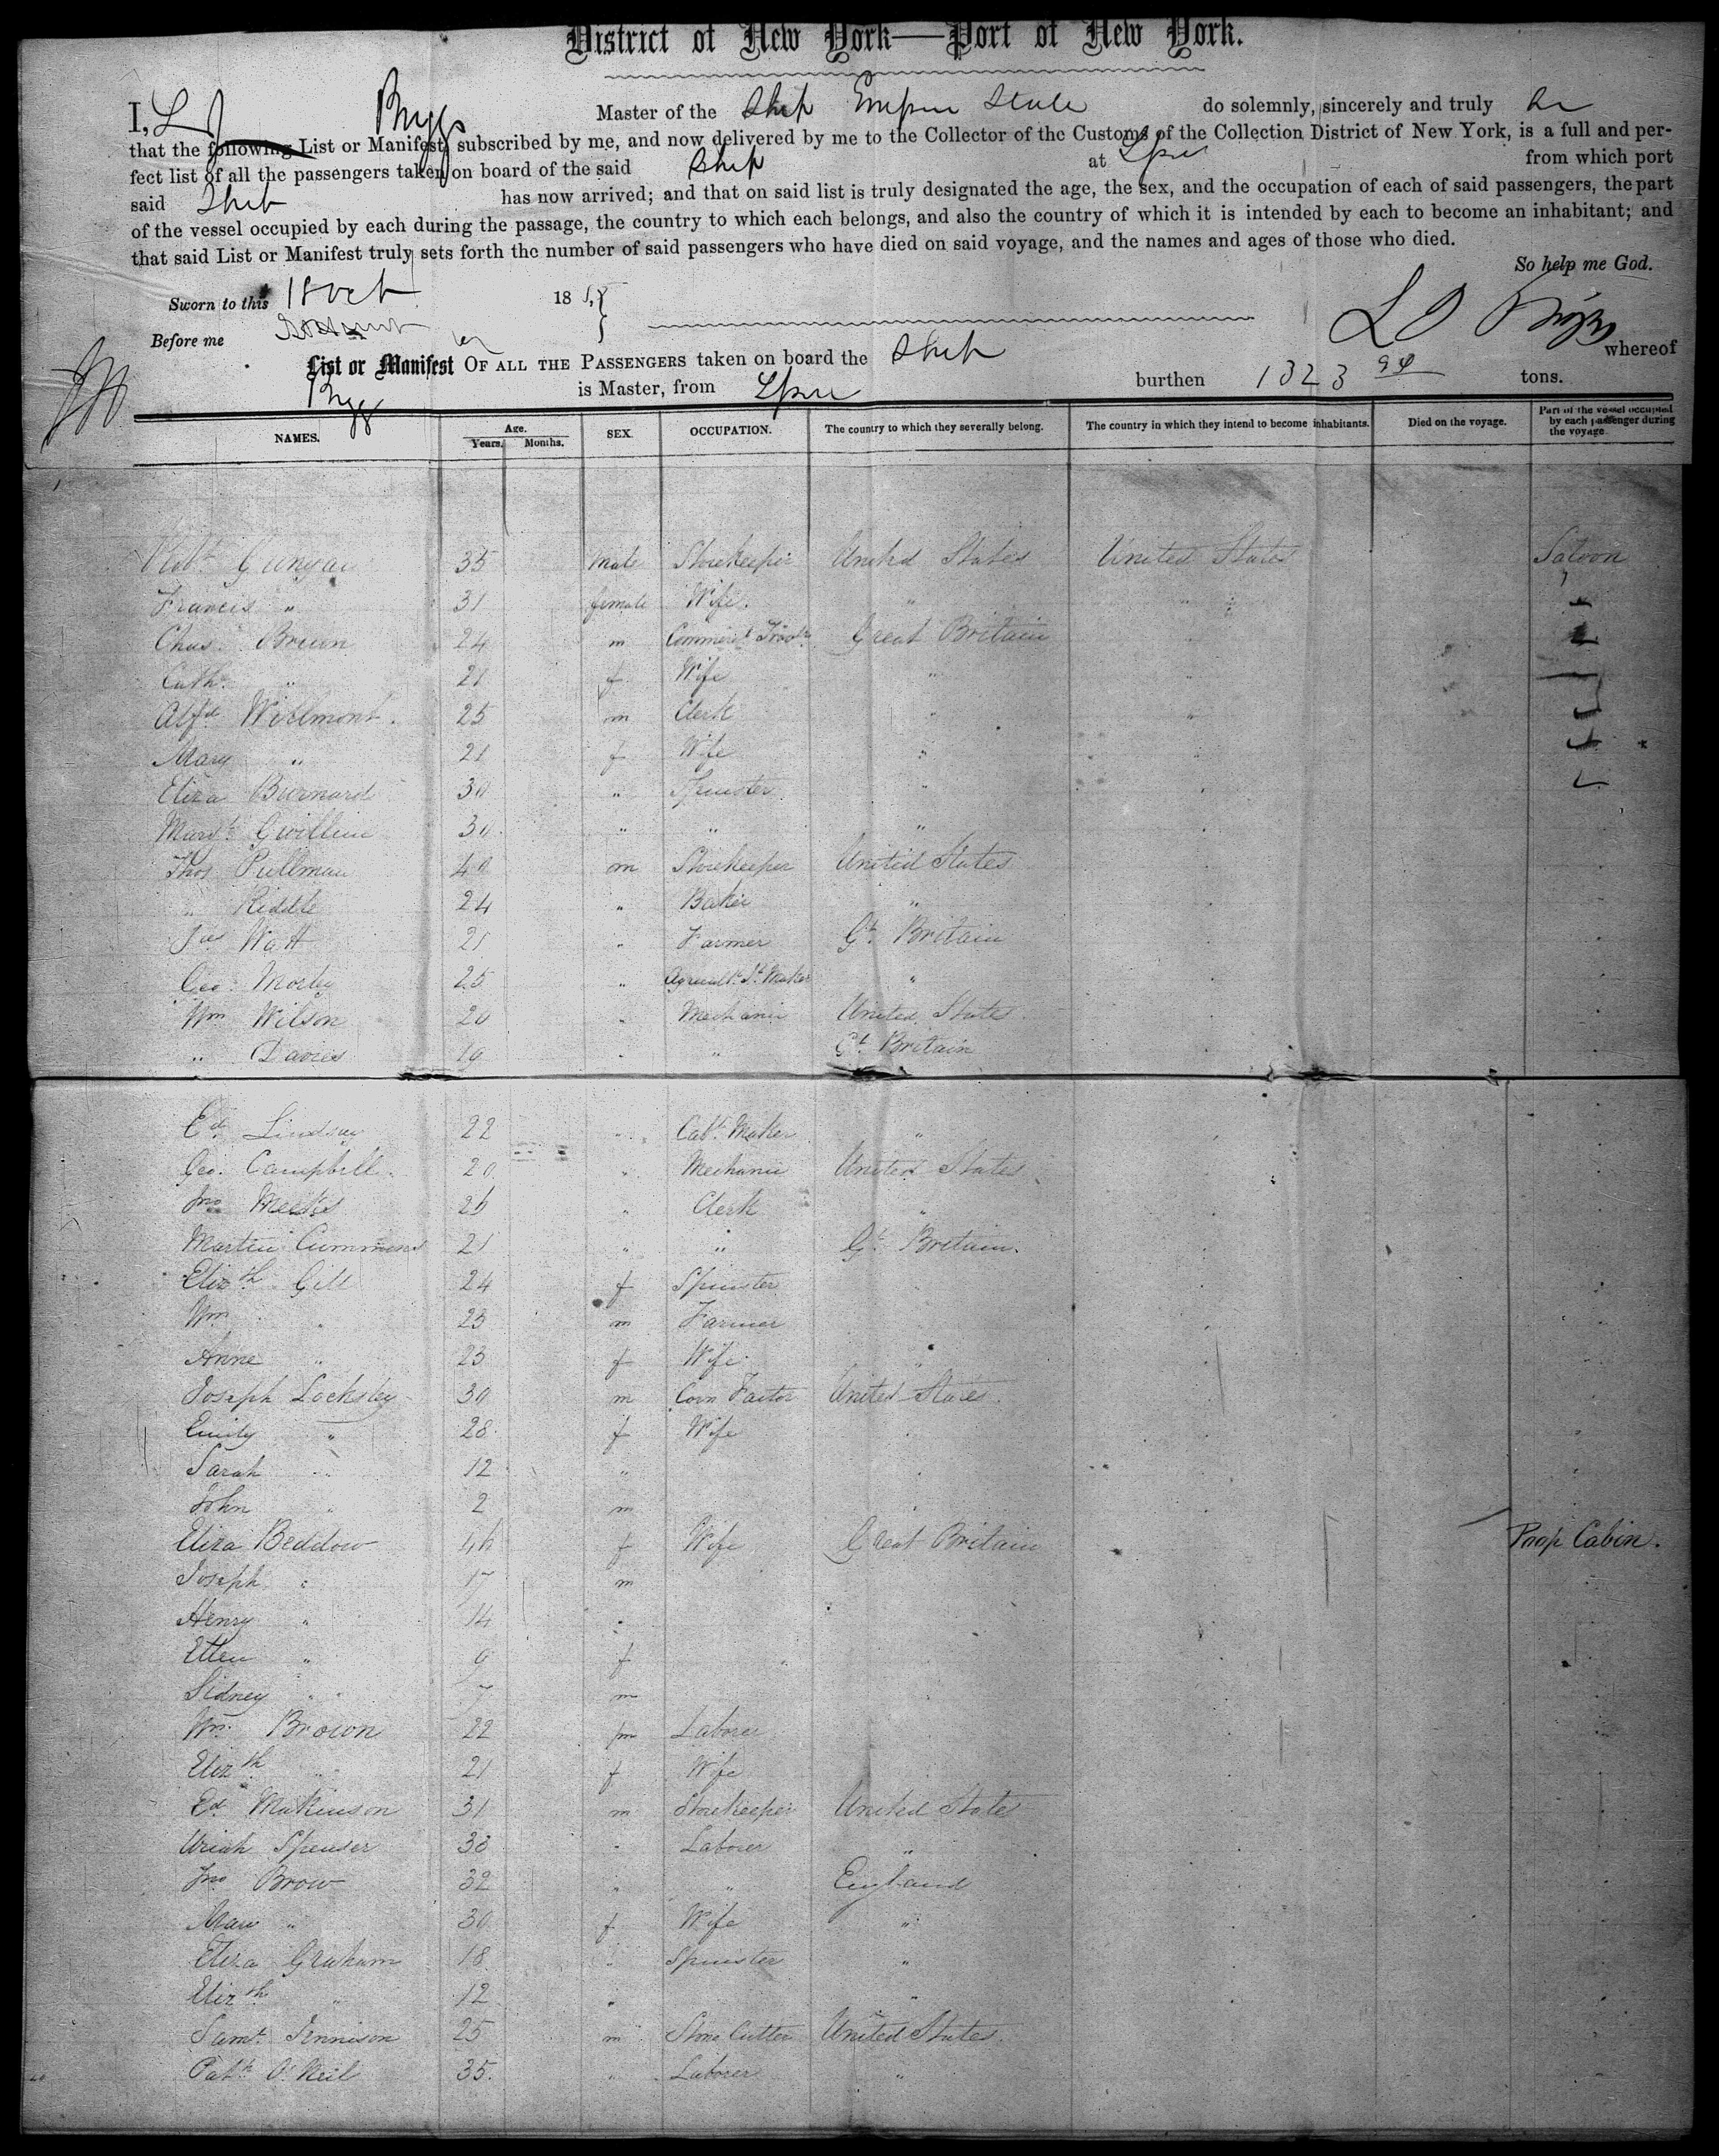 District of New York—Port of New York.
I, L Briggs Master of the Ship Empire State do solemnly, sincerely and truly
that the following List or Manifest, subscribed by me, and now delivered by me to the Collector of the Customs of the Collection District of New York, is a full and per-
fect list of all the passengers taken on board of the said Ship at Lpool from which port
said Ship has now arrived; and that on said list is truly designated the age, the sex, and the occupation of each of said passengers, the part
of the vessel occupied by each during the passage, the country to which each belongs, and also the country of which it is intended by each to become an inhabitant; and
that said List or Manifest truly sets forth the number of said passengers who have died on said voyage, and the names and ages of those who died.
So help me God.
Sworn to this 18 Oct 18
Before me
L Briggs
List or Manifest OF ALL THE PASSENGERS taken on board the Ship whereof
Briggs is Master, from Lpool burthen 1323 94 tons.
NAMES. Age. Years. Months. SEX. OCCUPATION. The country to which they severally belong. The country in which they intend to become inhabitants. Died on the voyage. Part of the vessel occupied by each passenger during the voyage.
Robt 35 Male Storekeeper United States United States Saloon
Francis " 31 female Wife " "
Chas. Bruen 24 m Great Britain "
Cath. " 21 f Wife " "
Alfd Willmont. 25 m Clerk " "
Mary " 21 f Wife "
Eliza Burnard 30 " Spinster "
Margt Gwillim 30 " " "
Thos Pullman 40 m Storekeeper United States
" Riddle 24 " Baker "
Jas Watt 21 " Farmer Gt. Britain
Geo. Morley 25 " Agricultl. It. Maker "
Wm Wilson 20 " Mechanic United States
" Davies 19 " " Gt. Britain
Ed. Lindsay 22 " Cabt. Maker "
Geo. Campbell 20 " Mechanic United States
Jno Meeks 26 " Clerk "
Martin Cummens 21 " " Gt. Britain.
Elizth Gill 24 f Spinster
Wm " 23 m Farmer
Anne " 23 f Wife "
Joseph Locksley 30 m Corn Factor United States.
Emily " 28 f Wife
Sarah " 12 "
John " 2 m
Eliza Beddow 46 f Wife Great Britain Poop Cabin.
Joseph " 17 m
Henry " 14 "
Ellen " 9 f
Sidney " 7 m
Wm. Brown 22 m Laborer
Elizth " 21 f Wife
Ed. Makinson 31 m Storekeeper United States
Uriah Spenser 33 " Laborer "
Jno Brow 32 " " England
Mary " 30 f Wife "
Eliza Graham 18 " Spinster "
Elizth " 12 " "
Saml. Jennison 25 m Stone Cutter United States.
Patk O'Neil 35. " Laborer "